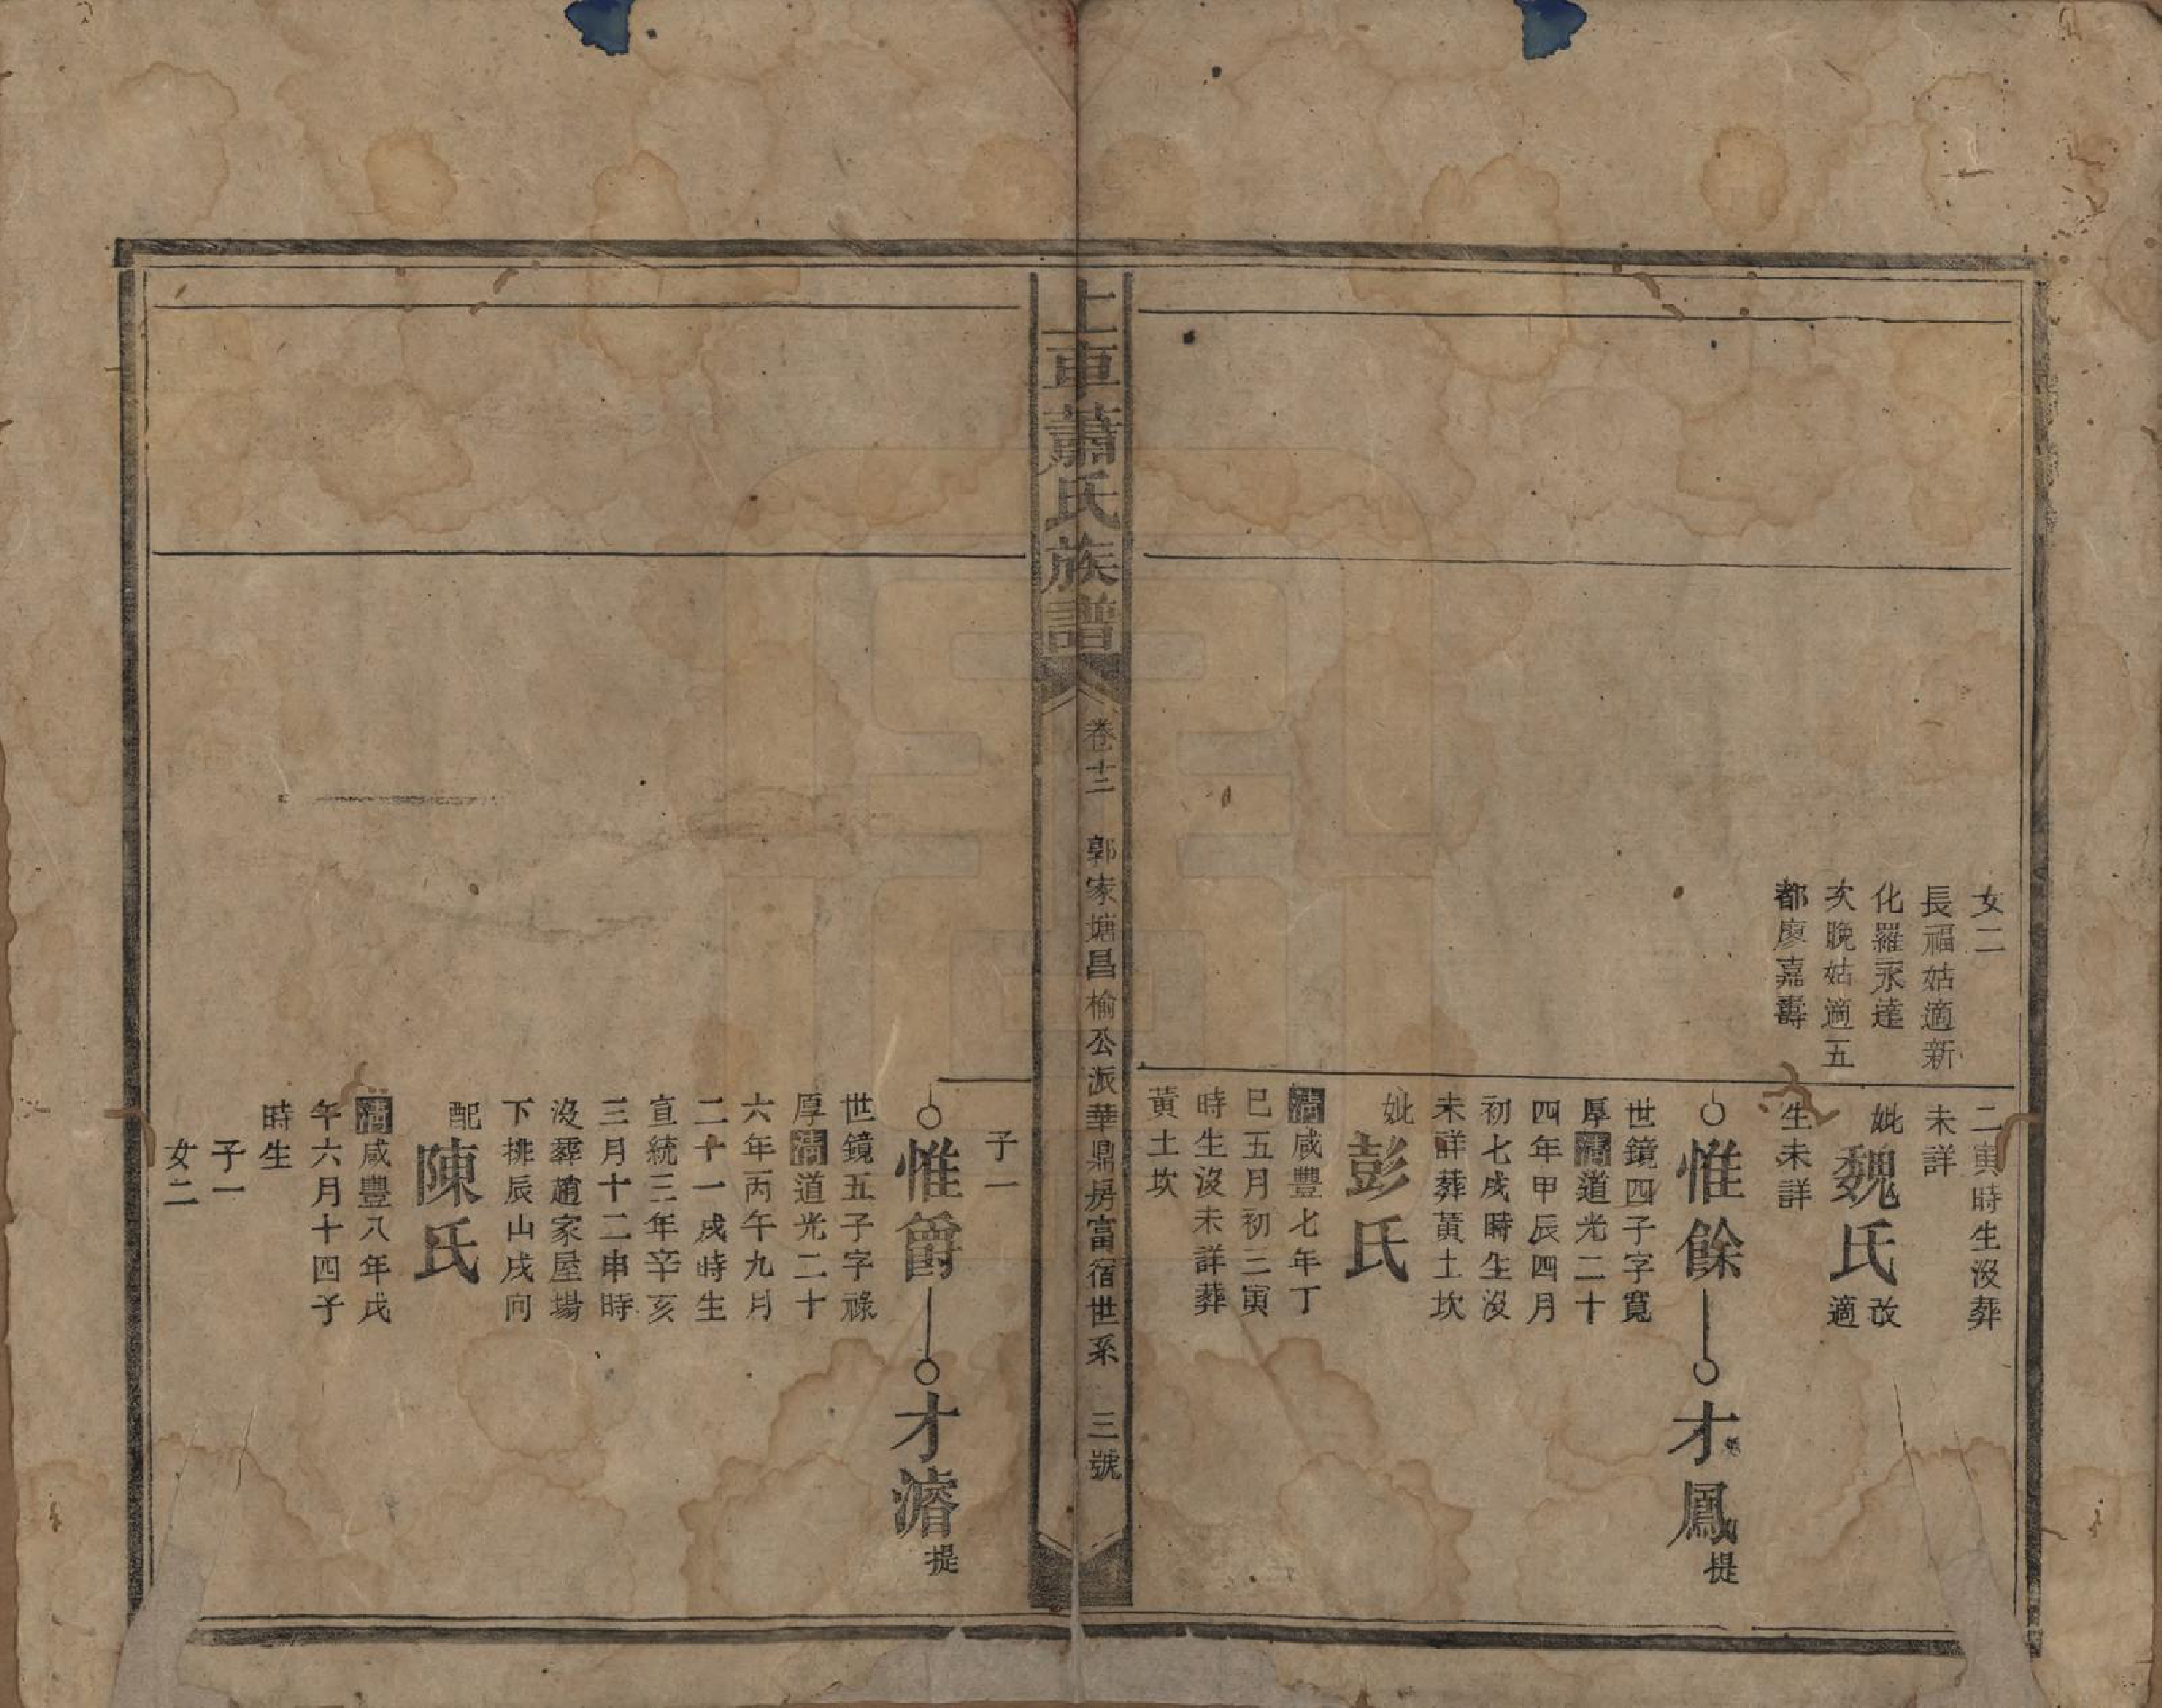 女二
長福姑適新
化羅永達
次晚姑適五
都廖嘉壽
二寅時生沒葬
未詳
妣魏氏改適
生未詳
惟餘
才鳳提
世鏡四子字寬
厚清道光二十
四年甲辰四月
初七戌時生沒
未詳葬黃土坎
妣彭氏
清咸豐七年丁
巳五月初三寅
時生沒未詳葬
黃土坎
上車蕭氏族譜
卷十二
郭家塘昌榆公派華鼎房富宿世系
三號
子一
惟爵
才濬提
世鏡五子字祿
厚清道光二十
六年丙午九月
二十一戌時生
宣統三年辛亥
三月十二申時
沒葬趙家屋場
下排辰山戌向
配陳氏
清咸豐八年戊
午六月十四子
時生
子一
女二